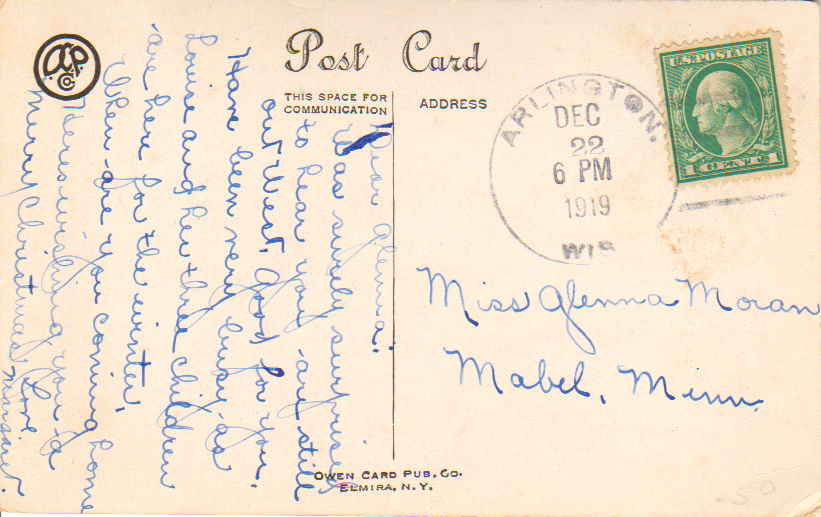 Post Card
THIS SPACE FOR
COMMUNICATION
ADDRESS
ARLINGTON.
DEC
22
6 PM
1919
WIS
U.S. POSTAGE
1 CENT 1
Dear Glenna:
Was surely surprised
to hear you are still
out West. Good for you.
Have been very busy as
Louise and her three children
are here for the winter.
When are you coming home
Heres wishing you a
Merry Christmas Love
Margaret.
Miss Glenna Moran
Mabel, Minn.
OWEN CARD PUB. CO.
ELMIRA, N.Y.